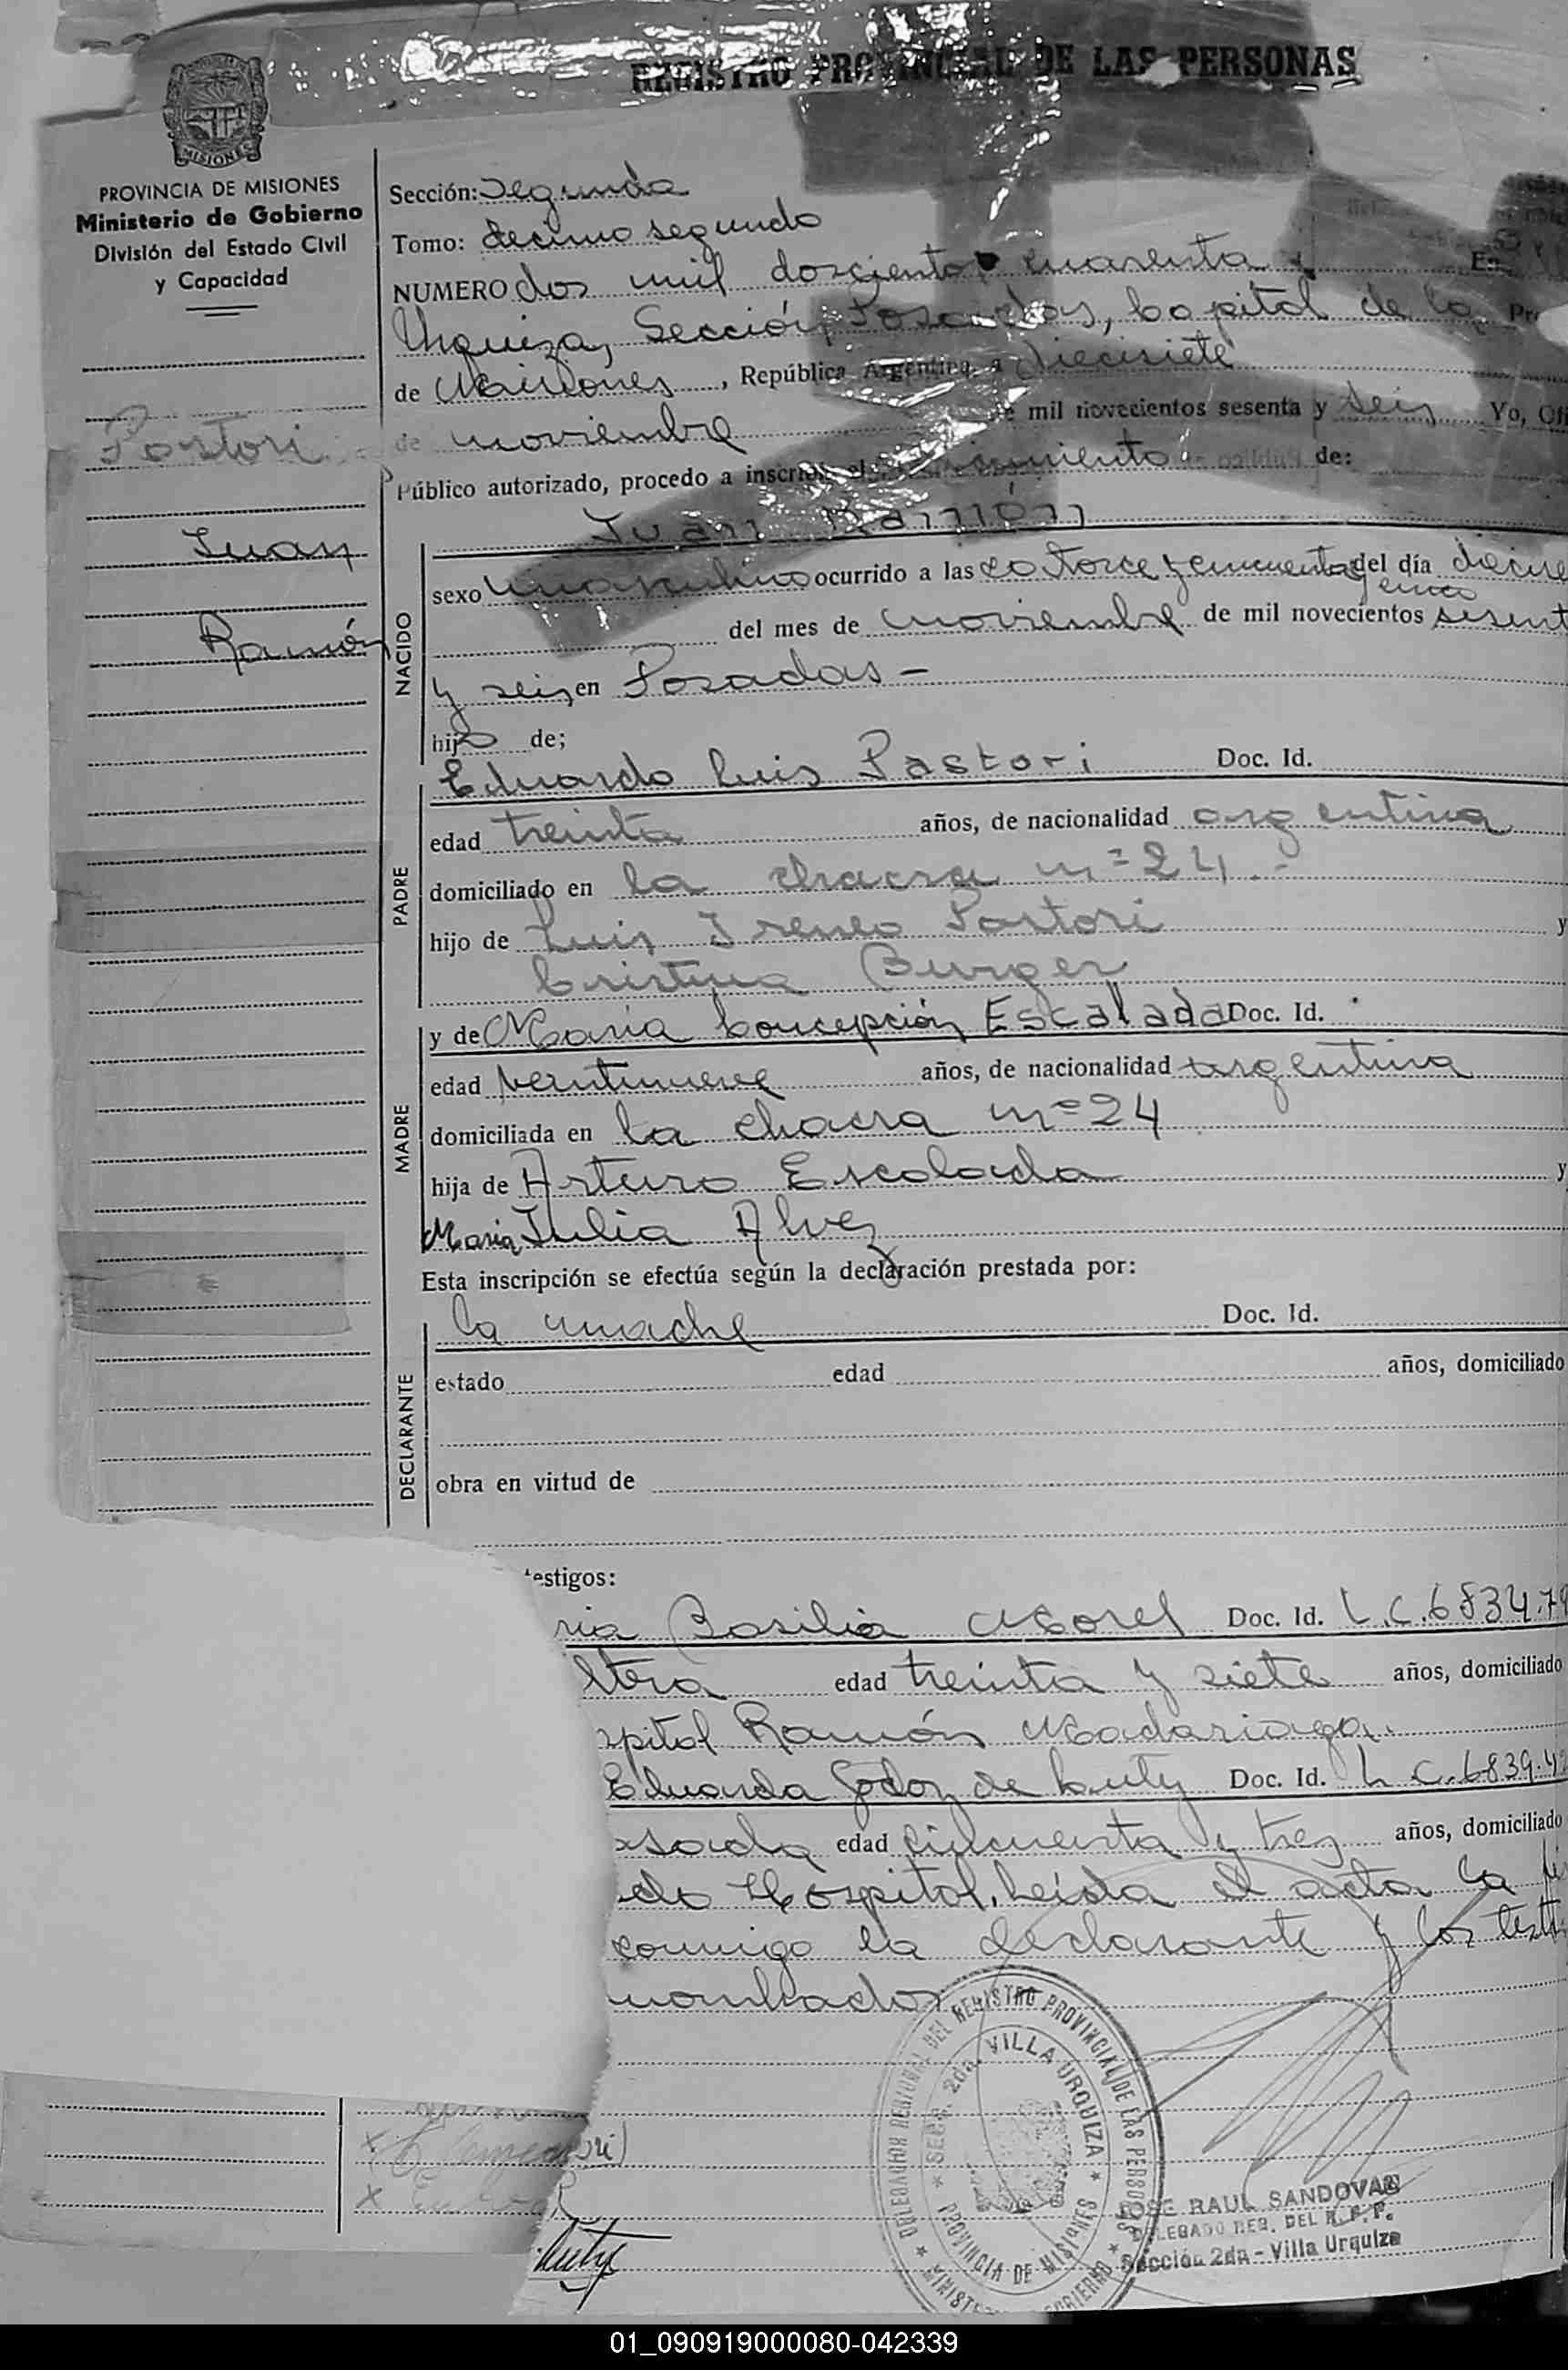 REGISTRO PROVINCIAL DE LAS PERSONAS
MISIONES
PROVINCIA DE MISIONES
Ministerio de Gobierno
División del Estado Civil
y Capacidad
Pastori
Juan
Ramón
Sección: Segunda
Tomo: decimo segundo
NUMERO dos mil doscientos cuarenta En
Urquiza, Sección, Posadas, Capital de la
de Misiones, República Argentina, a diecisiete
de noviembre de mil novecientos sesenta y seis Yo,
Público autorizado, procedo a inscribir el de:
Juan Ramón
NACIDO
sexo masculino ocurrido a las catorce y cincuenta y cinco del día
del mes de noviembre de mil novecientos
y seis, en Posadas -
hijo de;
PADRE
Eduardo Luis Pastori Doc. Id.
edad treinta años, de nacionalidad argentina
domiciliado en la chacra nº 24.-
hijo de Luis Ireneo Pastori y
Cristina Burger
MADRE
y de María Concepción Escalada Doc. Id.
edad veintinueve años, de nacionalidad argentina
domiciliada en la chacra nº 24
hija de Arturo Escalada y
Maria Julia Alvez
Esta inscripción se efectúa según la declaración prestada por:
DECLARANTE
la madre Doc. Id.
estado edad años, domiciliado
obra en virtud de
testigos:
Basilia Morel Doc. Id. L.C. 6834.7
edad treinta y siete años, domiciliado
Ramón Madariaga.
Eduarda Godoy de Cuty Doc. Id. L.C. 6839.4
edad cincuenta y tres años, domiciliado
Hospital. Leída el acta la
conmigo la declarante y los
nombrados
DELEGACION REGIONAL DEL REGISTRO PROVINCIAL DE LAS PERSONAS
SECC. 2da. VILLA URQUIZA
PROVINCIA DE MISIONES
JOSE RAUL SANDOVAL
DELEGADO REG. DEL R.P.P.
Sección 2da - Villa Urquiza
01_090919000080-042339